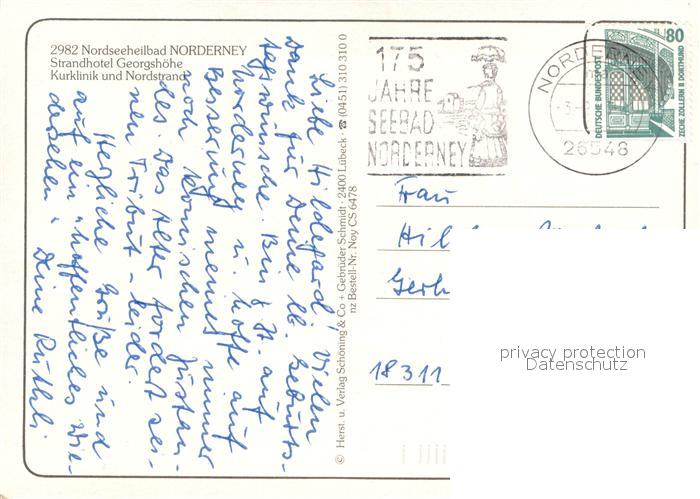 2982 Nordseeheilbad NORDERNEY
Strandhotel Georgshöhe
Kurklinik und Nordstrand
Liebe Hildegard! Vielen
Dank für Deine lb. Geburts-
tagswünsche. Bin z. Zt. auf
Norderney u. hoffe auf
Besserung meines immer
noch komischen Zustan-
des. Das Alter fordert sei-
nen Tribut - leider.
Herzliche Grüße und
auf ein "hoffentliches Wie-
dersehen". Deine Ruthli
© Herst. u. Verlag Schöning & Co + Gebrüder Schmidt · 2400 Lübeck · ☎ (0451) 310 310 0
nz Bestell-Nr. Noy CS 6478
175
JAHRE
SEEBAD
NORDERNEY
NORDERNEY
26548
80
DEUTSCHE BUNDESPOST
ZECHE ZOLLERN II DORTMUND
Frau
Hil
Gerh
18311
privacy protection
Datenschutz